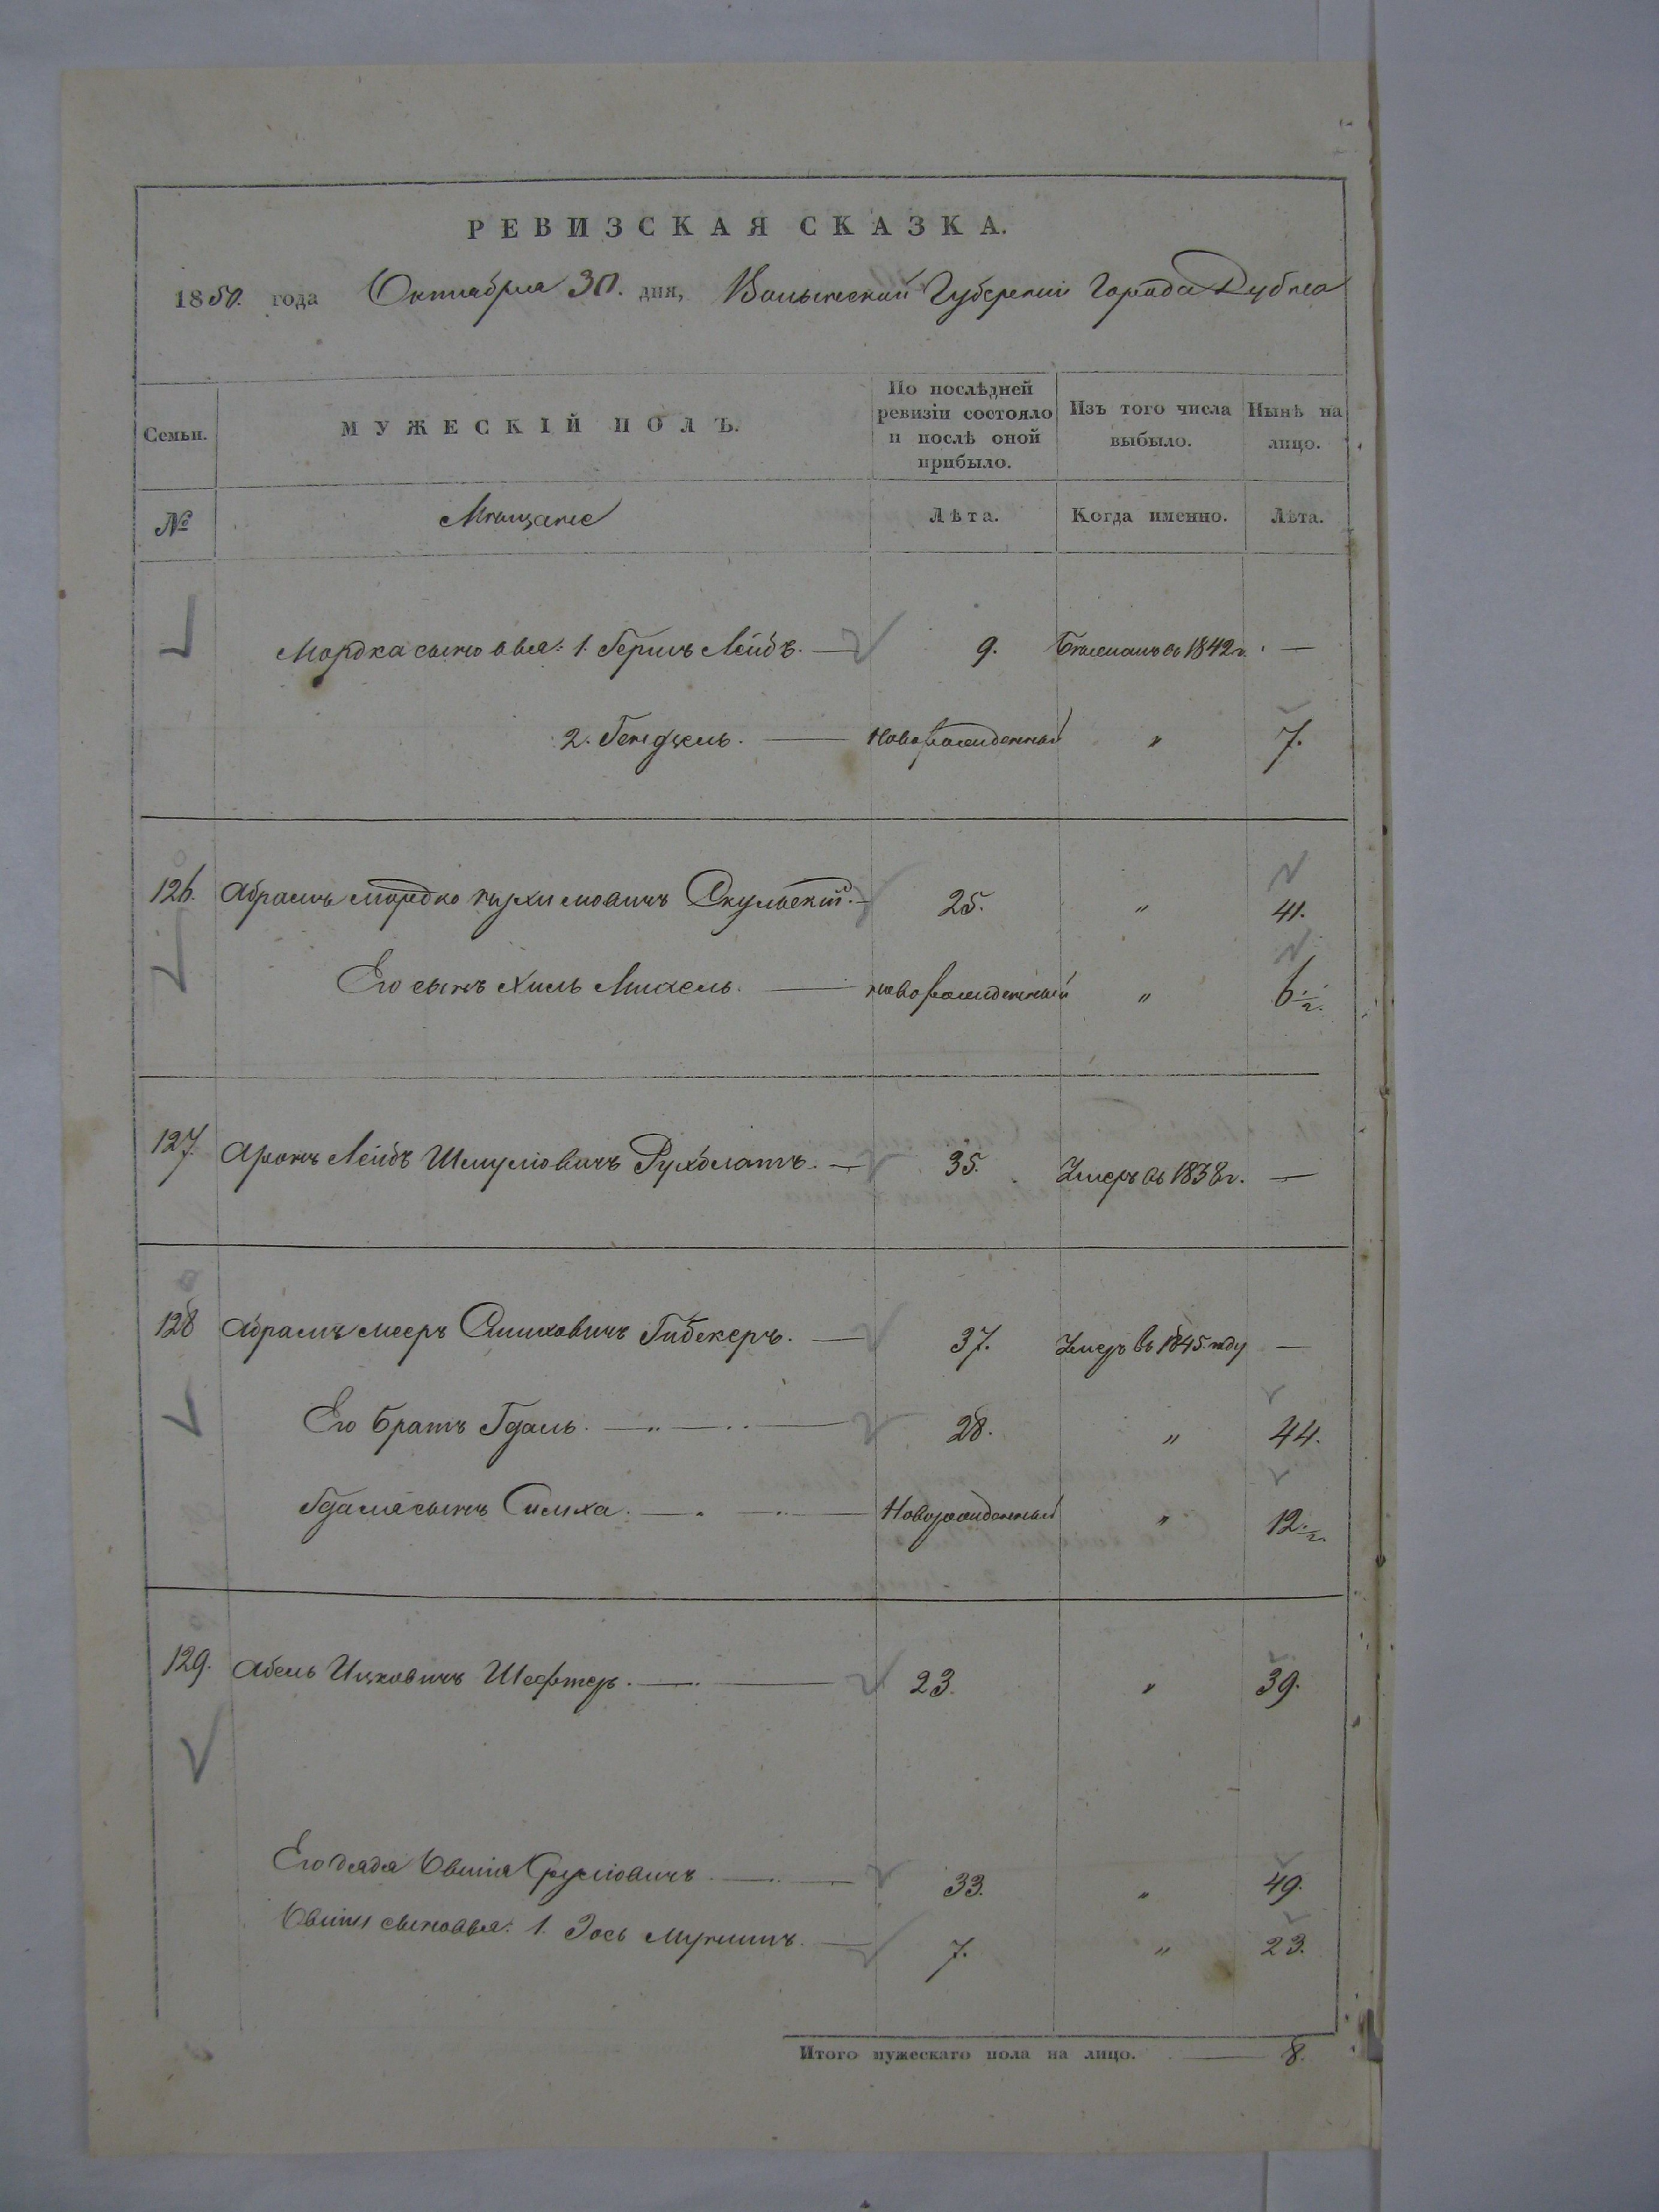 РЕВИЗСКАЯ СКАЗКА.
1850. года Октября 30. дня, Волынской Губернии Города Дубна
Семьи. МУЖЕСКІЙ ПОЛЪ. По послѣдней ревизіи состояло и послѣ оной прибыло. Изъ того числа выбыло. Нынѣ на лицо.
№ Мѣщане Лѣта. Когда именно. Лѣта.
Мордка сыновья: 1. Гершъ Лейбъ. — 9. въ 1842 г. —
2. — Новорожденный " 7.
126. Абрамъ Мордко Скульскій. — 25. " 41.
Его сынъ Хиль Михель. — новорожденный " 6 1/2.
127. Аронъ Лейбъ Шмуліовичъ — 35. Умеръ въ 1838 г. —
128 Абрамъ Мееръ Симховичъ Гибекеръ. — 37. Умеръ въ 1845 году —
Его братъ Гдаль. — " — " — 28. " 44.
Гдаля сынъ Симха. — " — " — Новорожденный " 12 1/2.
129. Абель Ицковичъ Шефтер. — 23. " 39.
Его дядя Овшія Сруліовичъ — 33. " 49.
Овшіи сыновья: 1. Зось — 7. " 23.
Итого мужескаго пола на лицо. — 8.